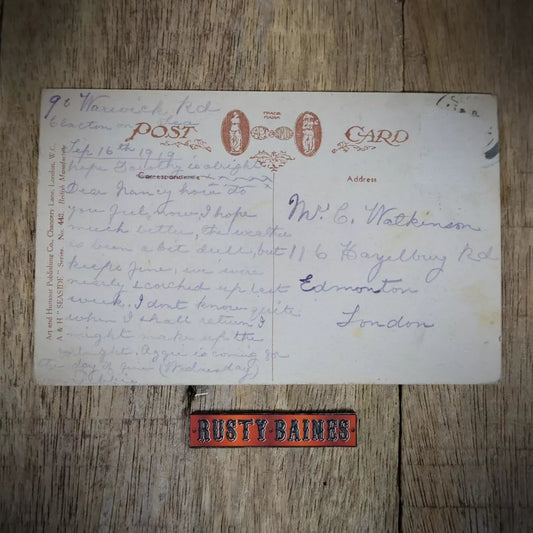 90 Warwick Rd
Clacton on Sea
POST CARD
TRADE MARK
Sep 16th 1919
hope Daddy is alright
Correspondence
Address
Dear Nancy how do
you feel now I hope
much better, the weather
is been a bit dull, but
keeps fine, we were
nearly scorched up last
week, I dont know quite
when I shall return I
might make up the
fortnight. Aggie is coming
day if fine (Wednesday)
Mr C. Watkinson
116 Hazelbury Rd
Edmonton
London
Art and Humour Publishing Co., Chancery Lane, London, W.C.
A & H "SEASIDE" Series No. 442. British Manufacture
RUSTY·BAINES